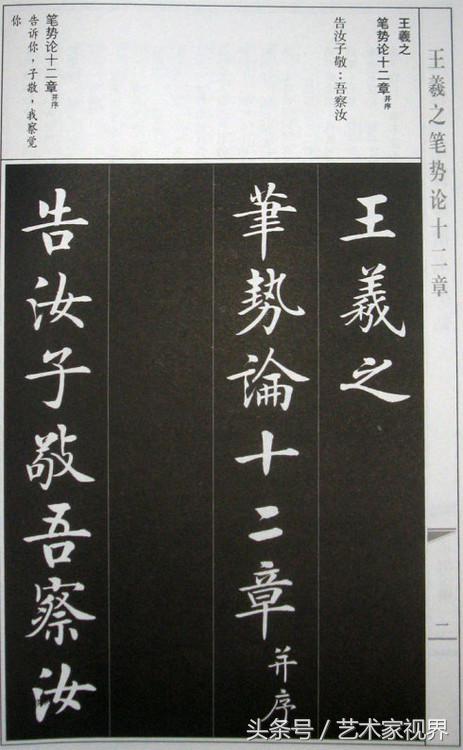 王羲之笔势论十二章
二
王羲之
笔势论十二章并序
告汝子敬：吾察汝
笔势论十二章并序
告诉你，子敬，我察觉
你
王羲之
筆勢論十二章并序
告汝子敬吾察汝
头条号 / 艺术家视界